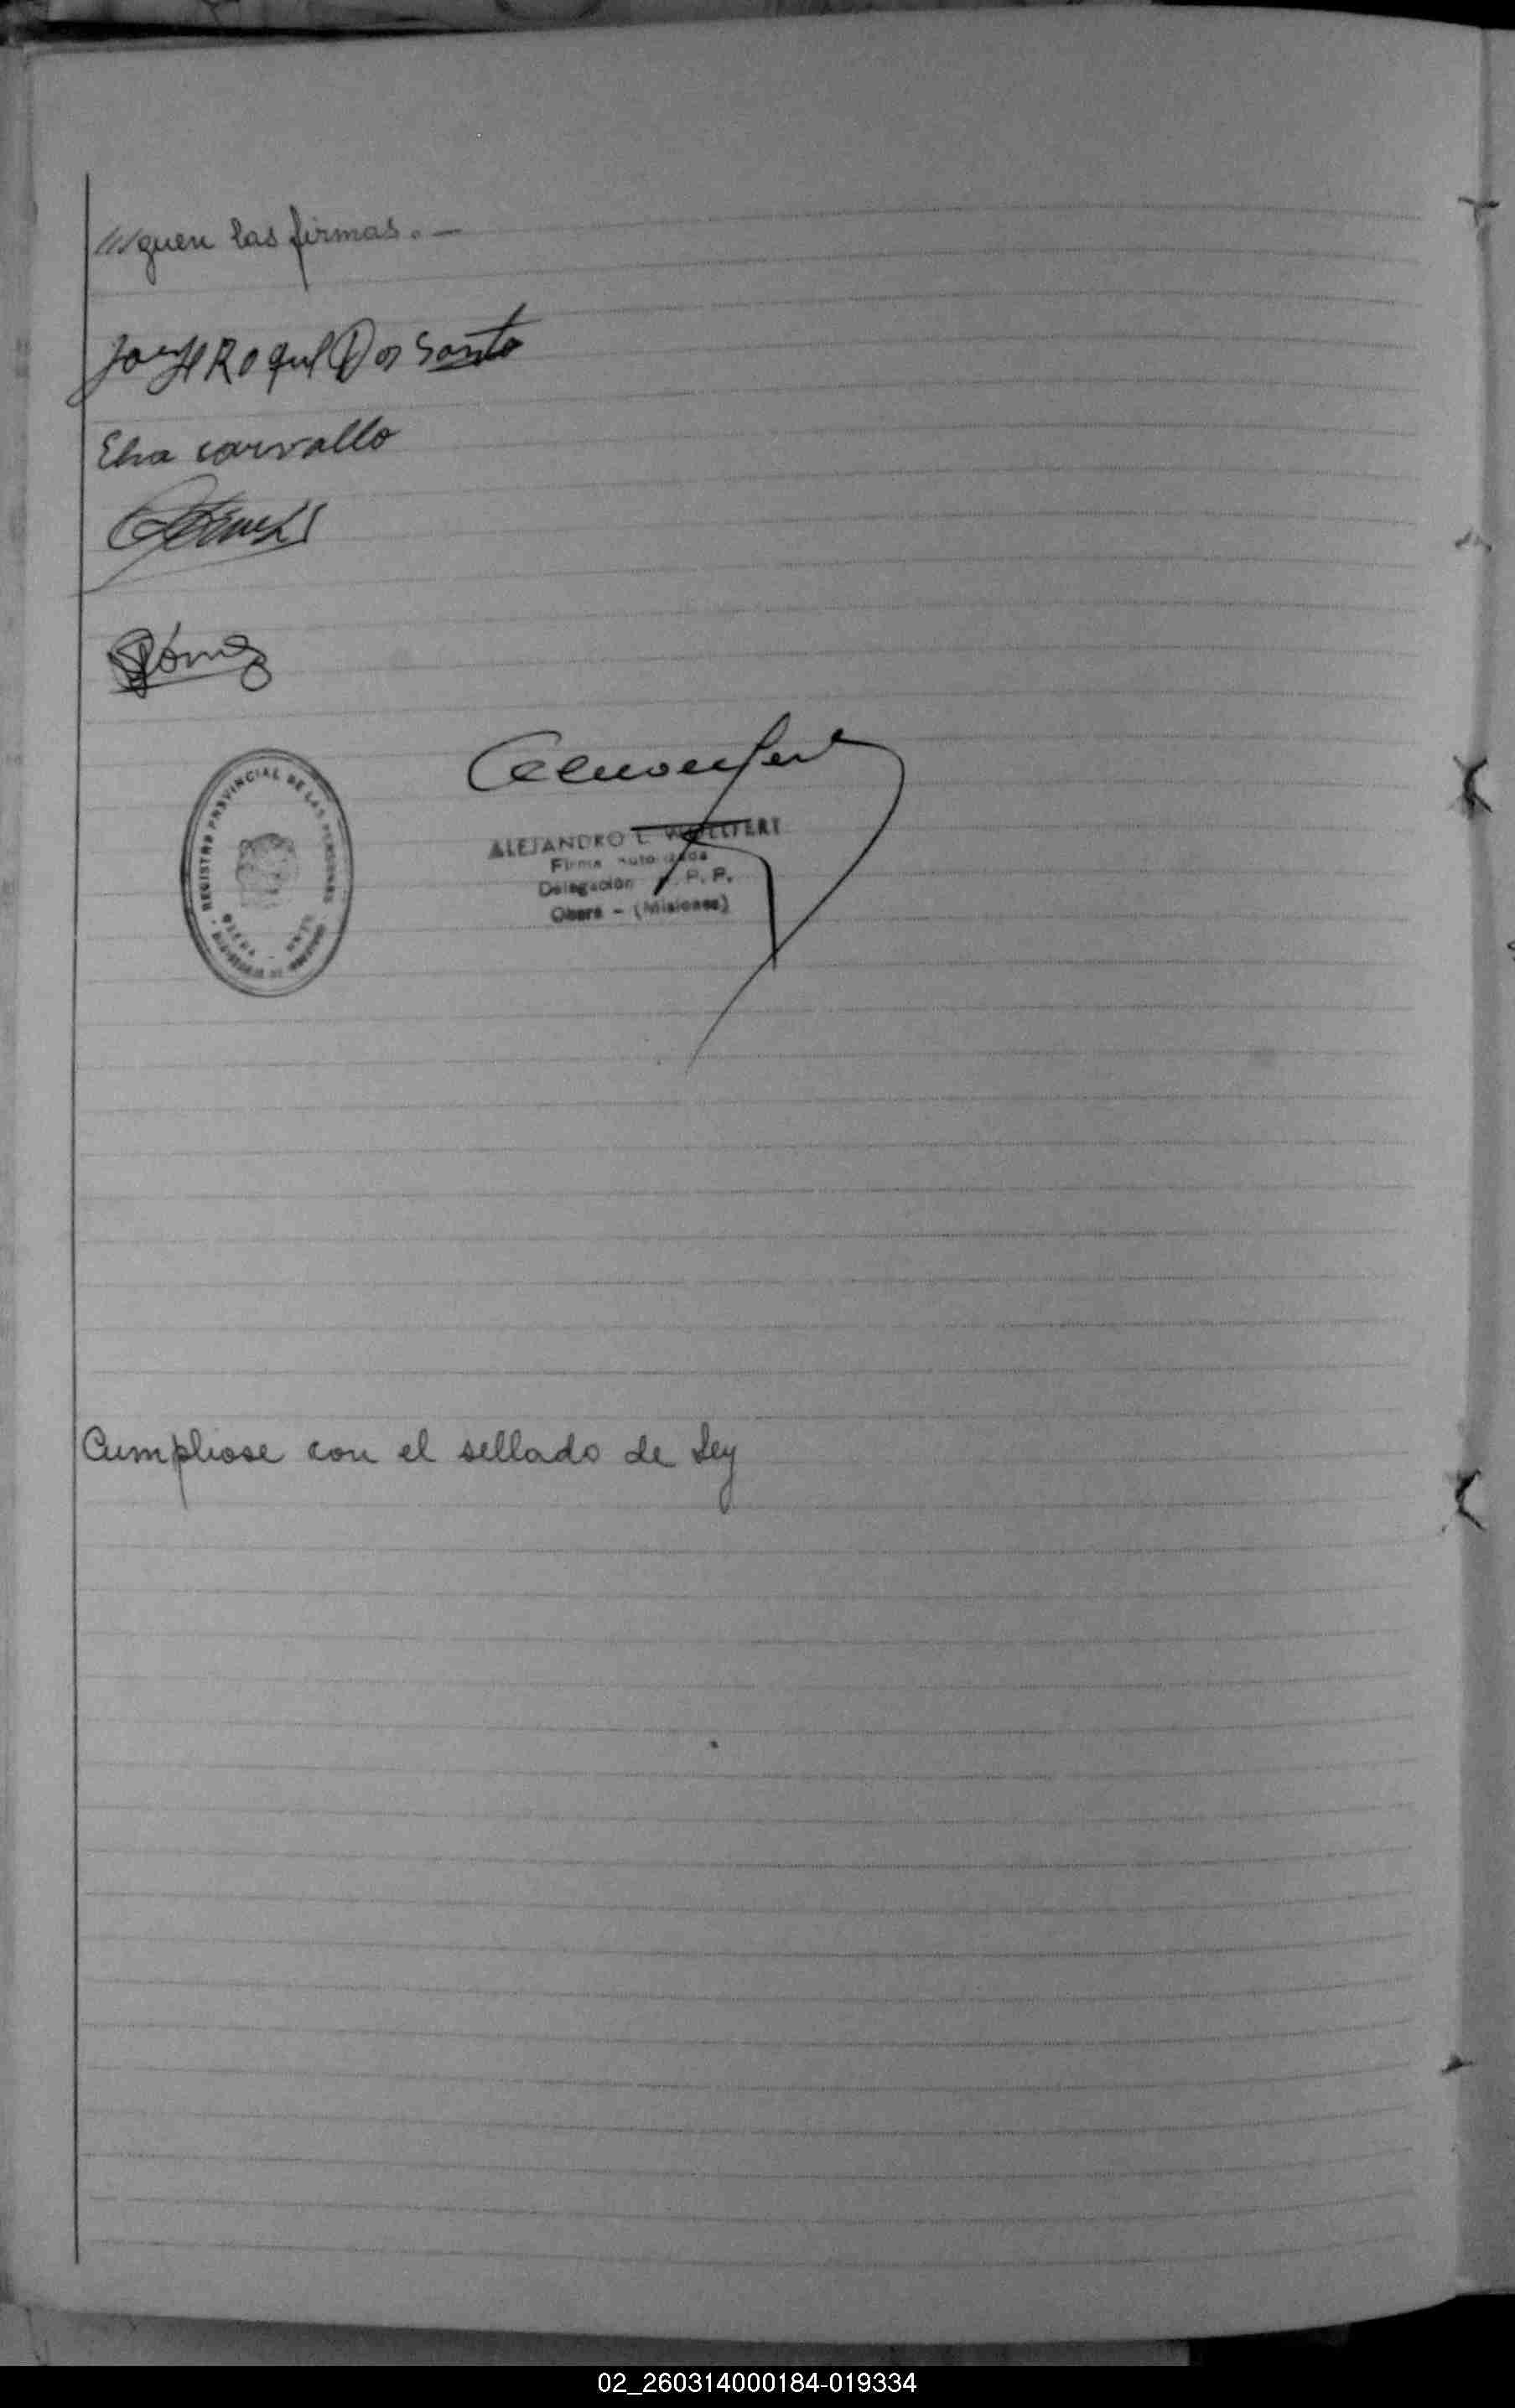 ///guen las firmas. —
Roque Dos Santo
Elva carvallo
Gómez
REGISTRO PROVINCIAL DE LAS PERSONAS
ALEJANDRO L. WOELFERT
Firma Autorizada
Delegación R. P. P.
Oberá - (Misiones)
Cumpliose con el sellado de Ley
02_260314000184-019334